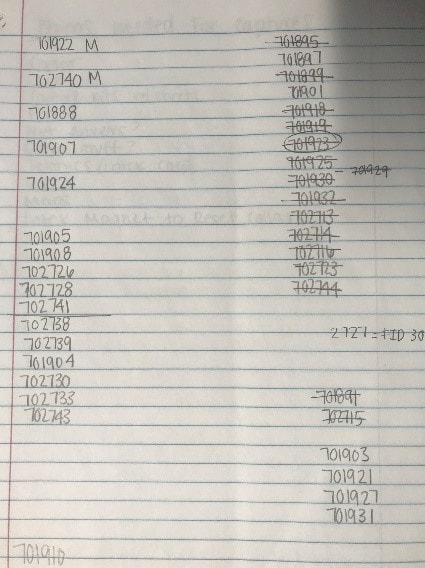 701922 M
702740 M
701888
701907
701924
701905
701908
702726
702728
702741
702738
702739
701904
702730
702733
702743
701910
701895
701897
701899
701901
701918
701919
701923
701925
701930 - 701929
701932
702713
702714
702716
702723
702744
2727 = FID 30
701891
702715
701903
701921
701927
701931